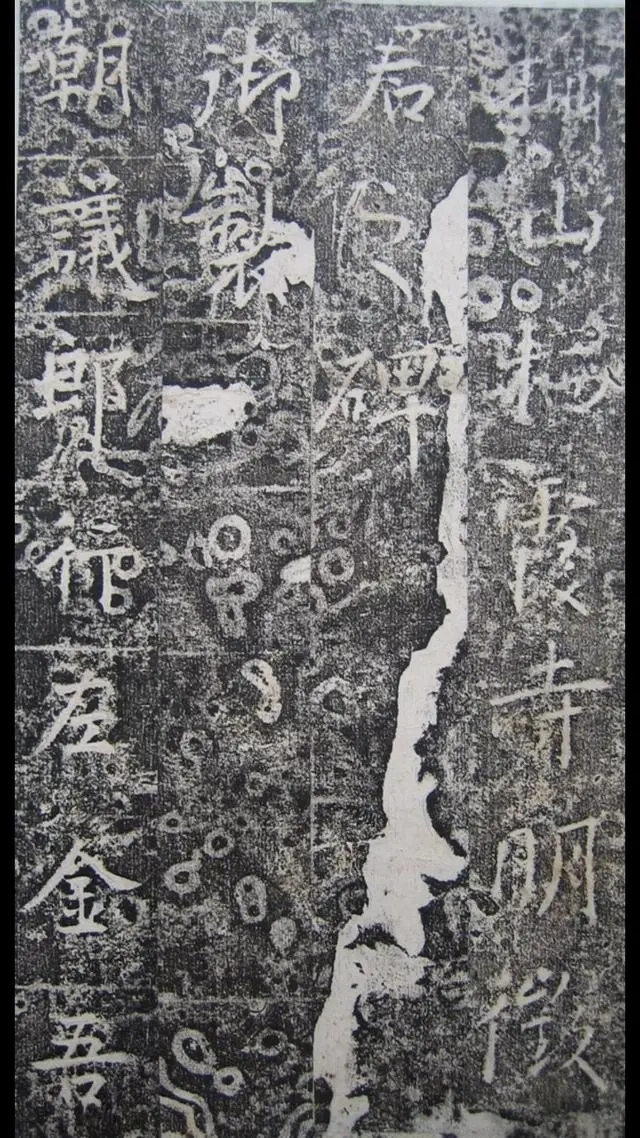 山棲霞寺明徵
君之碑
御製
朝議郎行左金吾